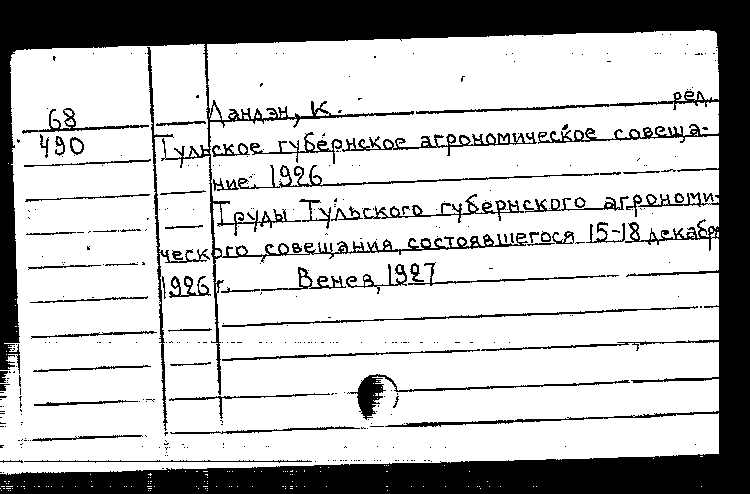 68 Ландэн, К. ред.
490 Тульское губернское агрономическое совеща-
ние. 1926
Труды Тульского губернского агрономи-
ческого совещания, состоявшегося 15-18 декабря
1926 г. Венев, 1927